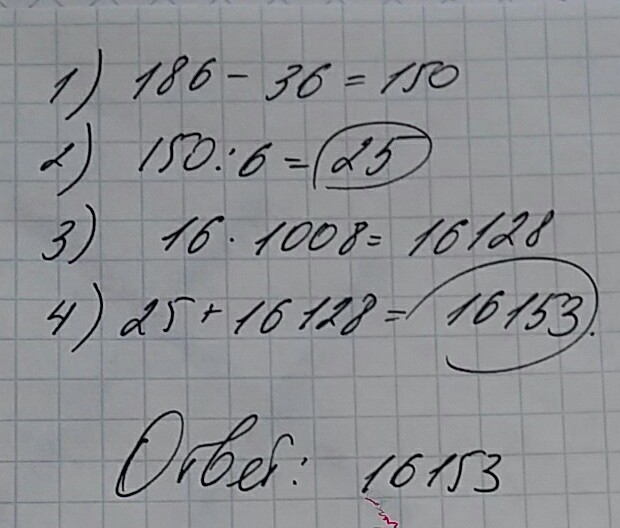 1) 186 - 36 = 150
2) 150 : 6 = 25
3) 16 · 1008 = 16128
4) 25 + 16128 = 16153.
Ответ: 16153